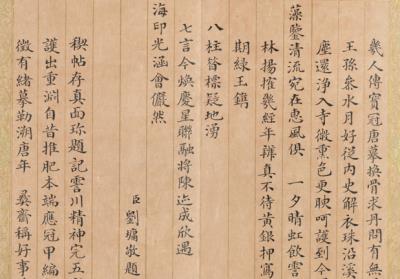 幾人傳寶冠唐摹換骨求丹問有無
王孫叅水月好從内史解衣珠沿溪
塵還淨入寺微熏色更腴呵護到今
藻鑒清流宛在惠風俱 一夕晴虹飲霅
林揚搉幾經年辨真不待黃銀押寫
期綠玉鐫
八柱暫標疑地湧
七言今煥慶星聯融將陳迹成欣遇
海印光涵會儼然
臣劉墉敬題
稧帖存真面珎題記霅川精神完五
護出重淵自昔推肥本端應冠甲編
徵有緒摹勒溯唐年 彝齋稱好事